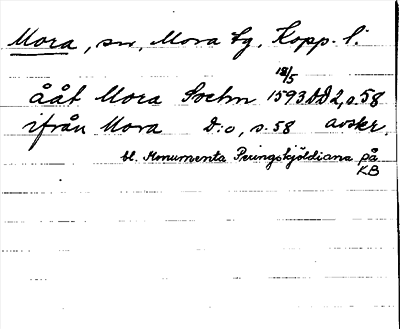 Mora, sn, Mora tg, Kopp. l.
18/5
ååt Mora Sochn 1593 DD2, s.58
ifrån Mora D:o, s.58 avskr.
bl. Monumenta Peringskjöldiana på
KB